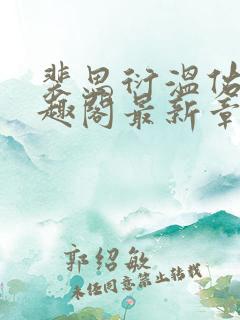 裴思衍温佶
趣阁最新章
郭绍敏
未经同意禁止转载